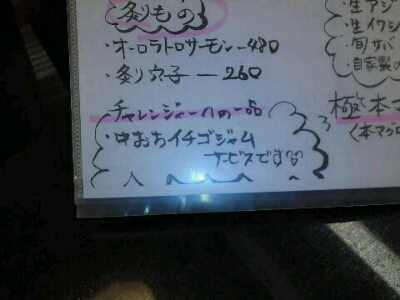 炙りもの
・オーロラトロサーモン―480
・炙り穴子―260
チャレンジャーへの一品
・中おちイチゴジャム
サービスです
・生アジ
・生イワシ
・旬サバ
・自家製の
極本マ
〈本マグロ